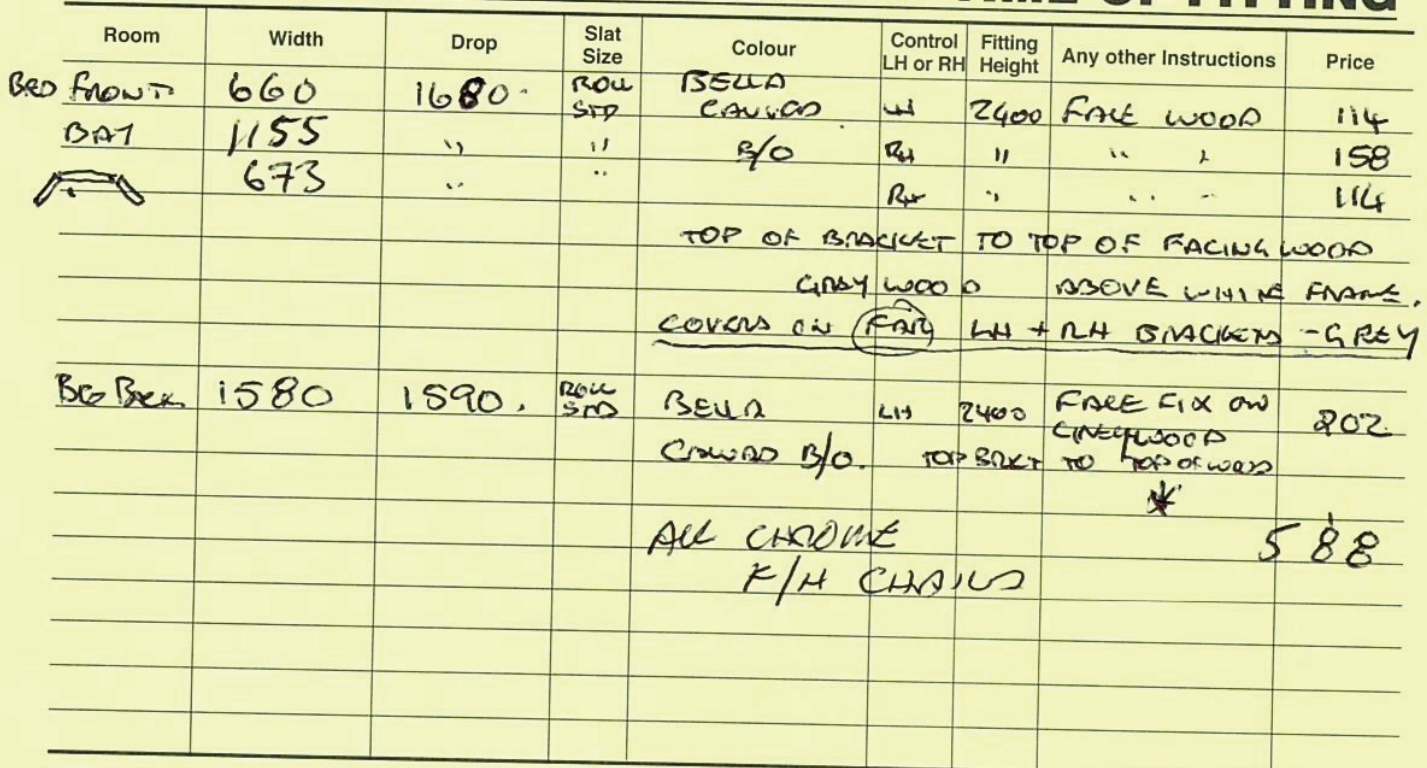 TIME OF FITTING
Room Width Drop Slat Size Colour Control LH or RH Fitting Height Any other Instructions Price
BED FRONT 660 1680. ROLL STD BELLA LH 2400 FACE WOOD 114
BAY 1155 " " B/O RH " " " 158
673 " " RH " " " 114
TOP OF BRACKET TO TOP OF FACING WOOD
GREY WOOD ABOVE WHITE FRAME.
COVERS ON FAR LH + RH BRACKETS - GREY
BED BACK 1580 1590. ROLL STD BELLA LH 2400 FACE FIX ON GREY WOOD 202
B/O. TOP BRKT TO TOP OF WOOD
*
ALL CHROME 588
F/H CHAINS